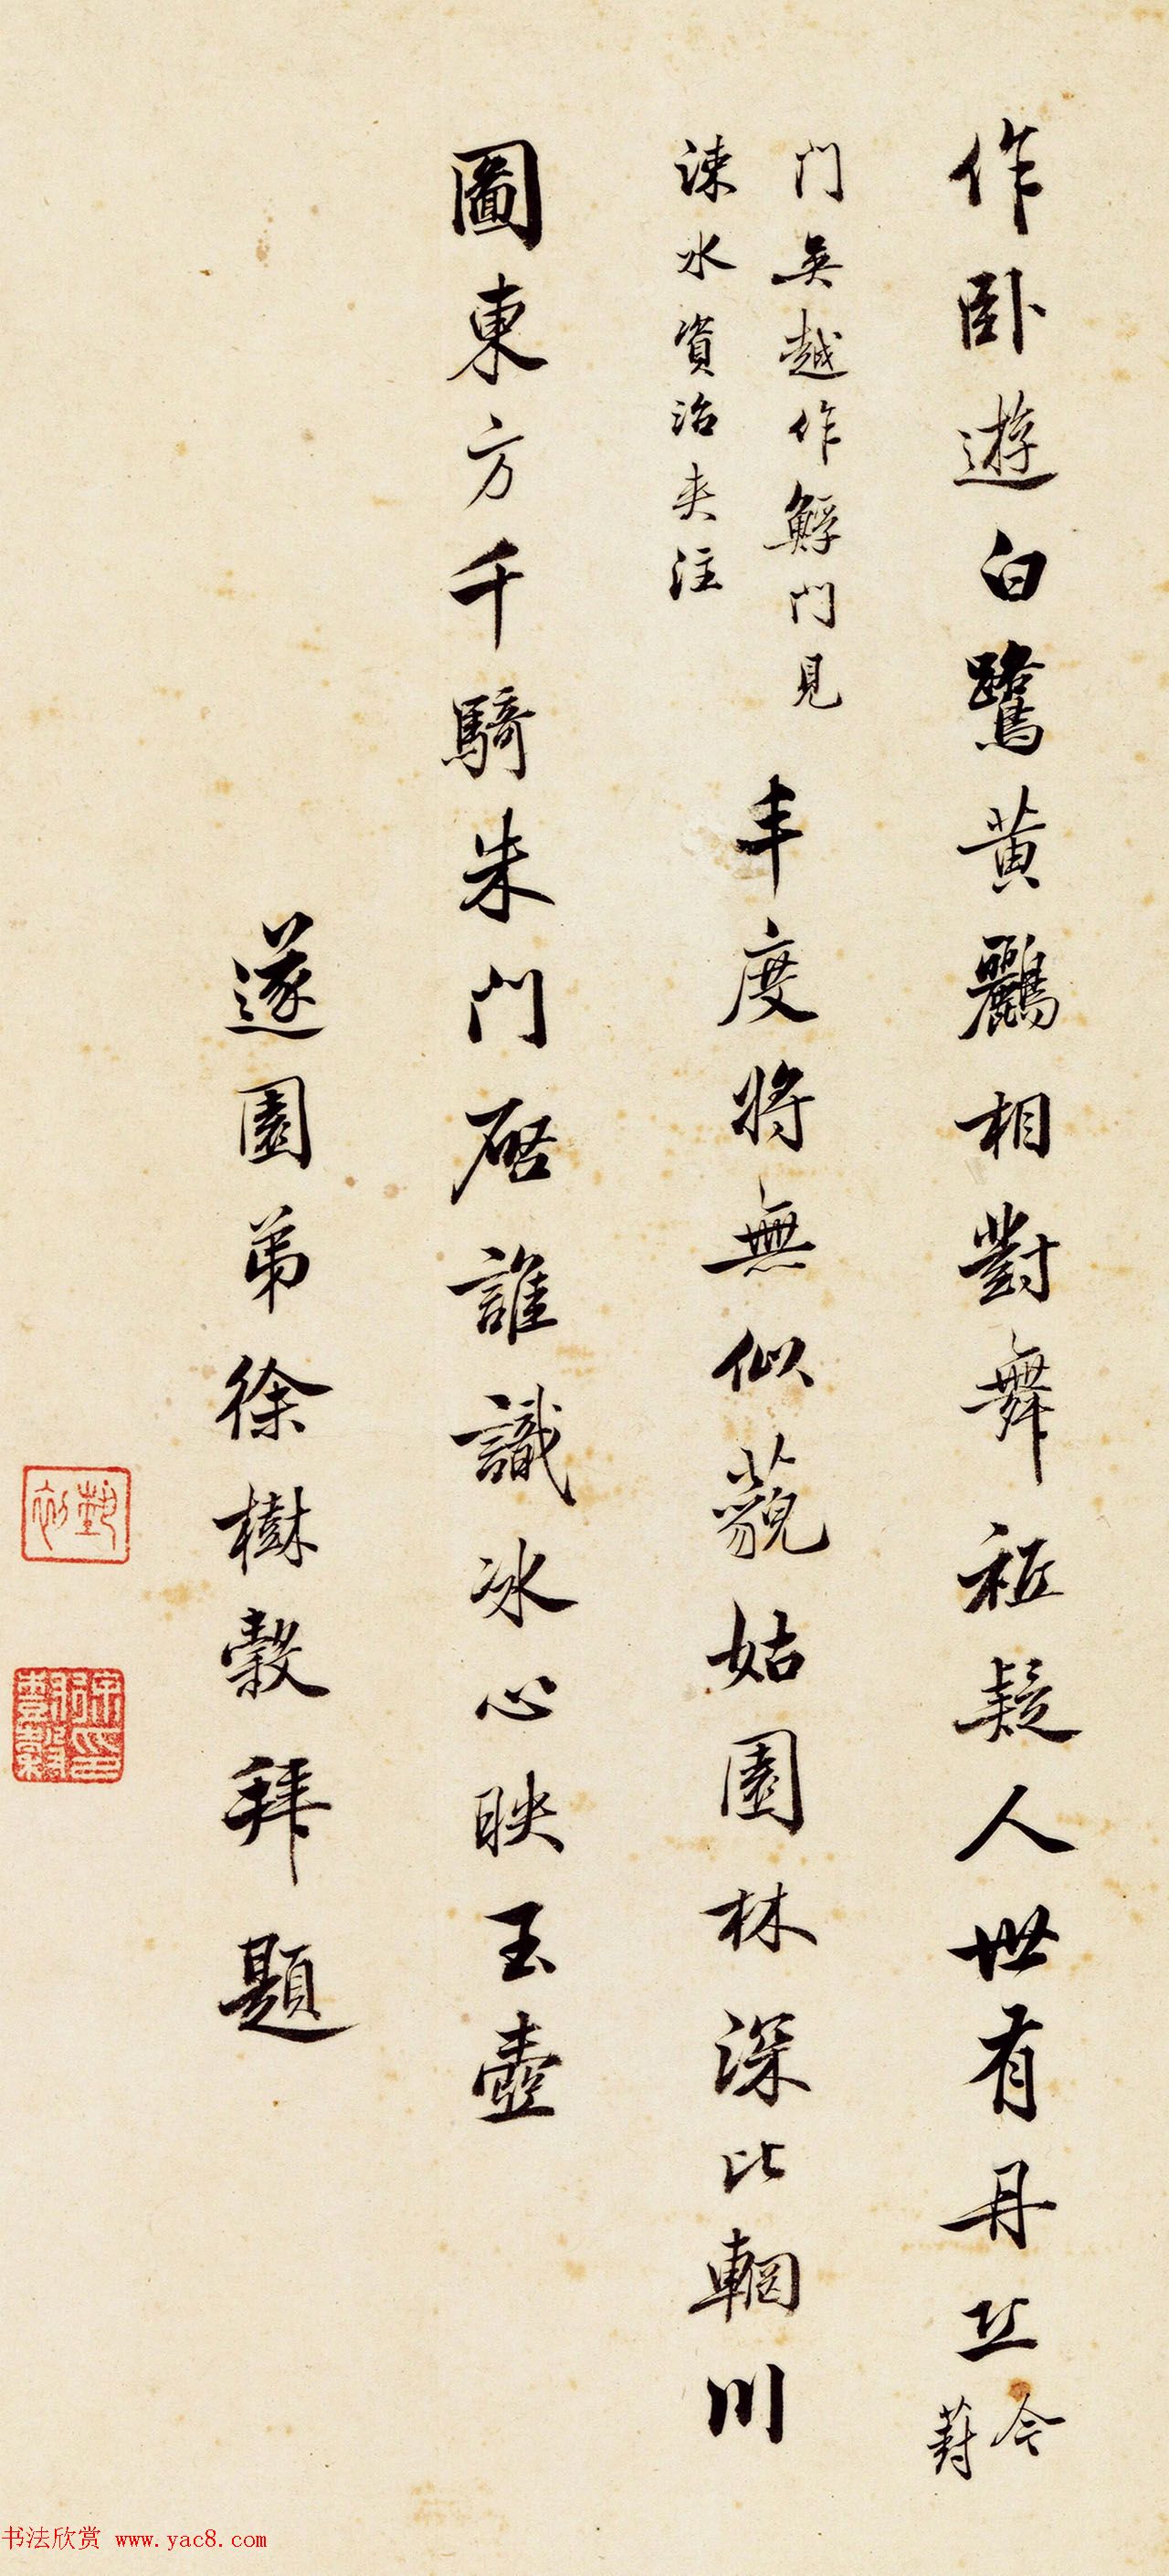 作卧遊白鷺黄鸝相對舞秪疑人世有丹丘
今
葑
門吳越作䱐門見
涑水資治夾注
丰度將無似藐姑園林深比輞川
圖東方千騎朱門啓誰識冰心映玉壺
遂園弟徐樹穀拜題
藝初
徐樹穀印
书法欣赏 www.yac8.com